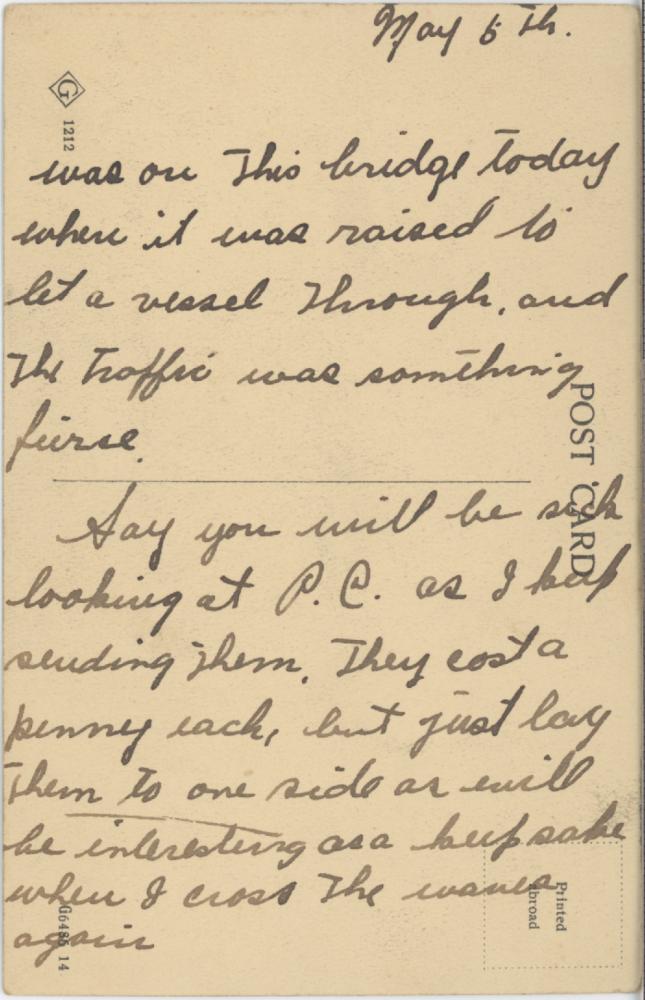 May 6 Th.
G
1212
was on This bridge today
when it was raised to
let a vessel Through, and
The Traffic was something
fierse.
POST CARD
Say you will be sick
looking at P.C. as I keep
sending Them. They cost a
penny each, but just lay
Them to one side as will
be interesting as a keepsake
when I cross The waves
again
Printed
abroad
G6486 14